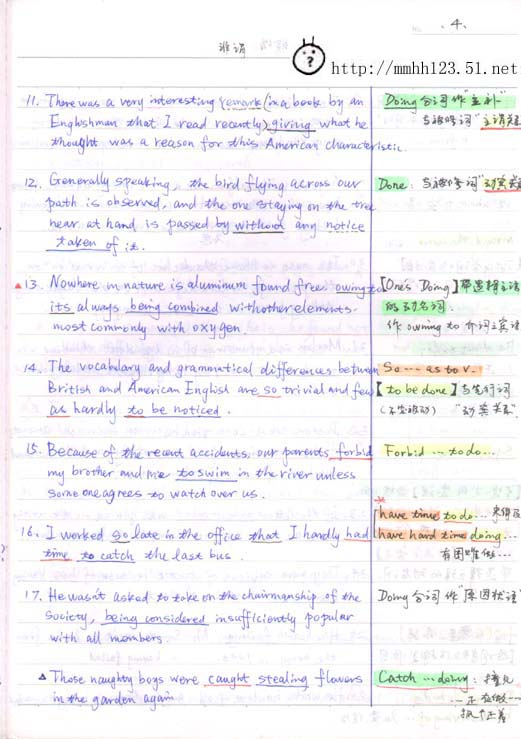 4.
非谓
?
http://mmhh123.51.net
11. There was a very interesting remark (in a book by an
Englishman that I read recently) giving what he
thought was a reason for this American characteristic.
Doing 分词作"主补"
与被修饰词"主谓关系
12. Generally speaking, the bird flying across our
path is observed, and the one staying on the tree
near at hand is passed by without any notice
taken of it.
Done: 与被修饰词"动宾关系
13. Nowhere in nature is aluminum found free owing to
its always being combined with other elements.
most commonly with oxygen.
【One's Doing】带逻辑主语
的动名词.
作 owning to 介词之宾语
14. The vocabulary and grammatical differences between
British and American English are so trivial and few
as hardly to be noticed.
So --- as to v.
【to be done】与先行词
"动宾关系"
15. Because of the recent accidents, our parents forbid
my brother and me to swim in the river unless
some one agrees to watch over us.
Forbid --- to do...
16. I worked so late in the office that I hardly had
time to catch the last bus.
* have time to do... 来得及
have hard time doing...
有困难做...
17. He wasn't asked to take on the chairmanship of the
society, being considered insufficiently popular
with all members
Doing 分词作"原因状语"
Those naughty boys were caught stealing flowers
in the garden again
Catch --- doing: 撞见
--- 正在做---